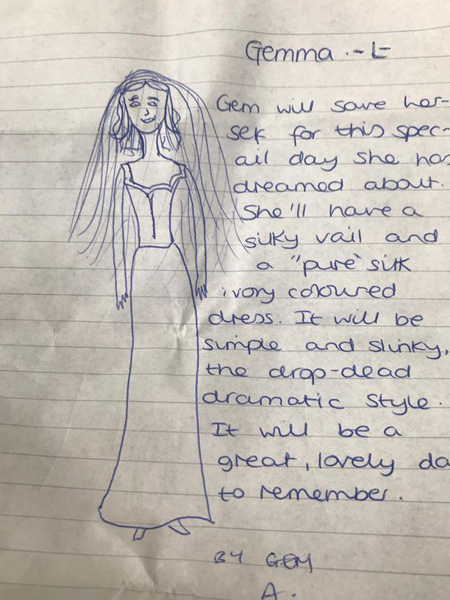 Gemma .~L
Gem will save her-
self for this spec-
ail day she has
dreamed about.
She'll have a
silky vail and
a "pure" silk
ivory coloured
dress. It will be
simple and slinky,
the drop-dead
dramatic style.
It will be a
great, lovely da
to remember.
BY GEM
A.